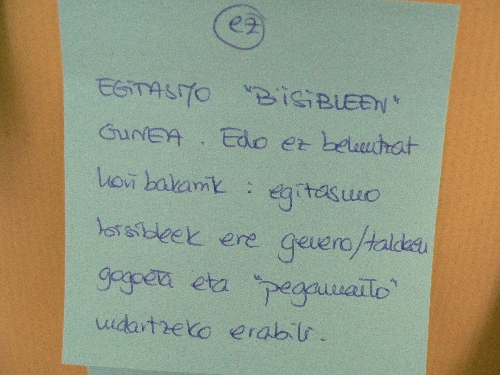 ez
EGITASMO "BISIBLEEN"
GUNEA. Edo ez behintzat
hori bakarrik : egitasmo
bisibleek ere genero/taldeen
gogoeta eta "pegamento"
indartzeko erabili.